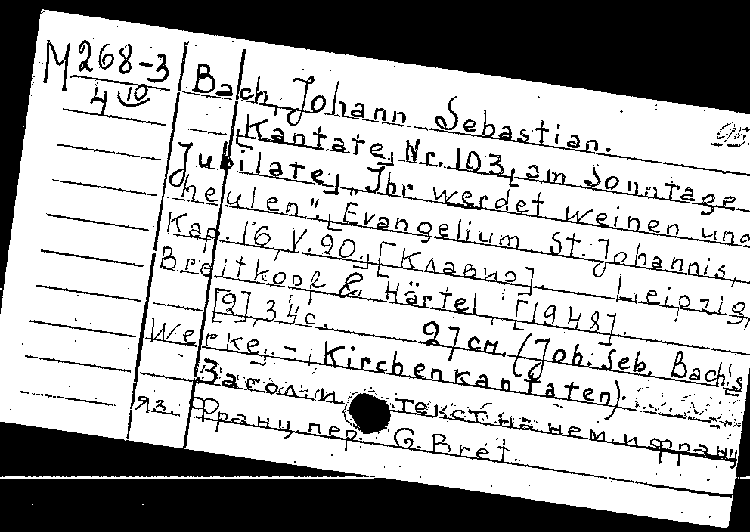 M 268-3
4 10
Bach, Johann Sebastian.
Kantate, Nr. 103, am Sonntage
Jubilate, "Ihr werdet weinen und
heulen". Evangelium St. Johannis,
Kap. 16, V. 20. [Клавир]. Leipzig,
Breitkopf & Härtel, [1948].
[2], 34 с. 27 см. (Joh. Seb. Bach's
Werke. - Kirchenkantaten).
Загол. и текст на нем. и франц
яз. Франц. пер. G. Bret.